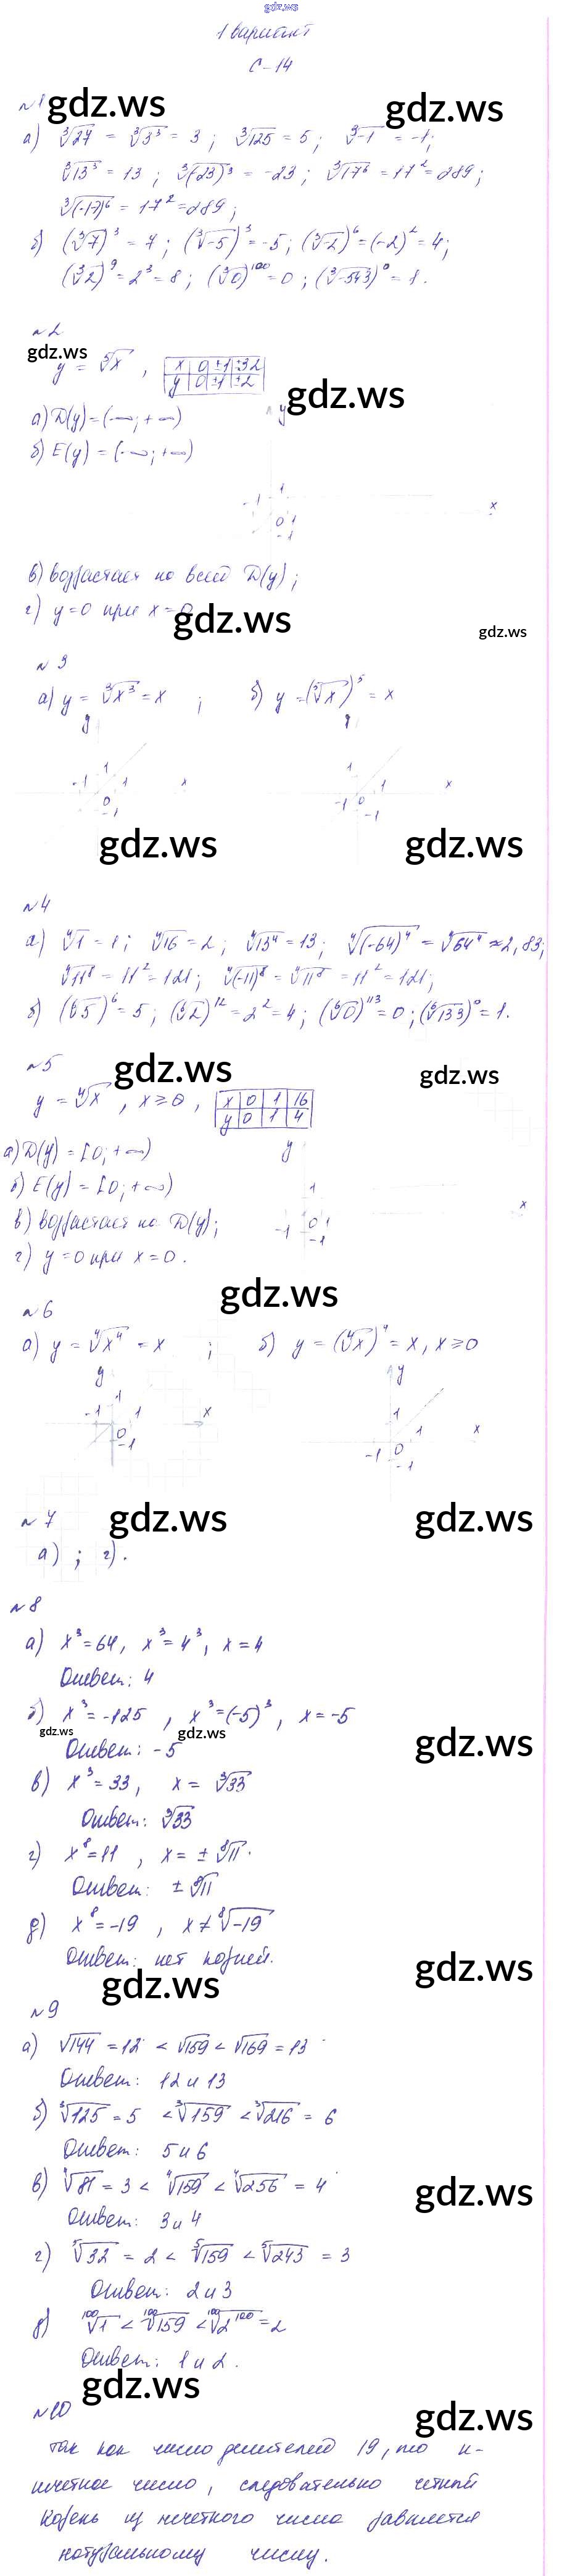 gdz.ws
1 вариант
С-14
№1 gdz.ws gdz.ws
а) ∛27 = ∛3³ = 3; ∛125 = 5; ∛-1 = -1;
∛13³ = 13; ∛(-23)³ = -23; ∛17⁶ = 17² = 289;
∛(-17)⁶ = 17² = 289;
б) (∛7)³ = 7; (∛-5)³ = -5; (∛-2)⁶ = (-2)² = 4;
(∛2)⁹ = 2³ = 8; (∛0)¹⁰⁰ = 0; (∛-543)⁰ = 1.
№2
gdz.ws
y = ⁵√x, x 0 ±1 ±32
y 0 ±1 ±2
gdz.ws
а) D(y) = (-∞; +∞) y
б) E(y) = (-∞; +∞)
-1 1 x
0 1
-1
в) возрастает на всей D(y);
г) y = 0 при x = 0
gdz.ws gdz.ws
№3
а) y = ∛x³ = x; б) y = (⁵√x)⁵ = x
y y
-1 1 1 x 1 1 x
0 -1 -1 0 -1
gdz.ws gdz.ws
№4
а) ⁴√1 = 1; ⁴√16 = 2; ⁴√13⁴ = 13; ⁴√(-64)⁴ = ⁴√64⁴ ≈ 2,83;
⁴√11⁸ = 11² = 121; ⁴√(-11)⁸ = ⁴√11⁸ = 11² = 121;
б) (⁶√5)⁶ = 5; (⁶√2)¹² = 2² = 4; (⁶√0)¹¹³ = 0; (⁶√133)⁰ = 1.
№5 gdz.ws gdz.ws
y = ⁴√x, x ≥ 0, x 0 1 16
y 0 1 4
а) D(y) = [0; +∞) y
б) E(y) = [0; +∞) 1
в) возрастает на D(y); -1 0 1 x
г) y = 0 при x = 0. -1
gdz.ws
№6
а) y = ⁴√x⁴ = x; б) y = (⁴√x)⁴ = x, x ≥ 0
y y
-1 1 1 x 1 1 x
0 -1 -1 0 -1
№7 gdz.ws gdz.ws
а); г).
№8
а) x³ = 64, x³ = 4³, x = 4
Ответ: 4
б) x³ = -125, x³ = (-5)³, x = -5
gdz.ws gdz.ws gdz.ws
Ответ: -5
в) x³ = 33, x = ∛33
Ответ: ∛33
г) x⁸ = 11, x = ± ⁸√11.
Ответ: ± ⁸√11
д) x⁸ = -19, x ≠ ⁸√-19
Ответ: нет корней.
gdz.ws gdz.ws
№9
а) √144 = 12 < √159 < √169 = 13
Ответ: 12 и 13
б) ∛125 = 5 < ∛159 < ∛216 = 6
Ответ: 5 и 6
в) ⁴√81 = 3 < ⁴√159 < ⁴√256 = 4
gdz.ws
Ответ: 3 и 4
г) ⁵√32 = 2 < ⁵√159 < ⁵√243 = 3
Ответ: 2 и 3
д) ¹⁰⁰√1 < ¹⁰⁰√159 < ¹⁰⁰√2¹⁰⁰ = 2
Ответ: 1 и 2.
gdz.ws
№10 gdz.ws
Так как число делителей 19, то n-
нечетное число, следовательно четный
корень из нечетного числа равняется
натуральному числу.